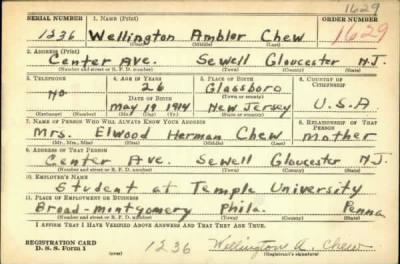 1629
SERIAL NUMBER 1. NAME (Print) ORDER NUMBER
1236 Wellington Ambler Chew 1629
(First) (Middle) (Last)
2. ADDRESS (Print)
Center Ave. Sewell Gloucester N.J.
(Number and street or R. F. D. number) (Town) (County) (State)
3. TELEPHONE 4. AGE IN YEARS 5. PLACE OF BIRTH 6. COUNTRY OF CITIZENSHIP
No 26 Glassboro
DATE OF BIRTH (Town or county)
May 19 1914 New Jersey U.S.A
(Exchange) (Number) (Mo.) (Day) (Yr.) (State or country)
7. NAME OF PERSON WHO WILL ALWAYS KNOW YOUR ADDRESS 8. RELATIONSHIP OF THAT PERSON
Mrs. Elwood Herman Chew Mother
(Mr., Mrs., Miss) (First) (Middle) (Last)
9. ADDRESS OF THAT PERSON
Center Ave. Sewell Gloucester N.J.
(Number and street or R. F. D. number) (Town) (County) (State)
10. EMPLOYER'S NAME
Student at Temple University
11. PLACE OF EMPLOYMENT OR BUSINESS
Broad-Montgomery Phila. Penna
(Number and street or R. F. D. number) (Town) (County) (State)
I AFFIRM THAT I HAVE VERIFIED ABOVE ANSWERS AND THAT THEY ARE TRUE.
REGISTRATION CARD
D. S. S. Form 1 1236 Wellington A. Chew
(Registrant's signature)